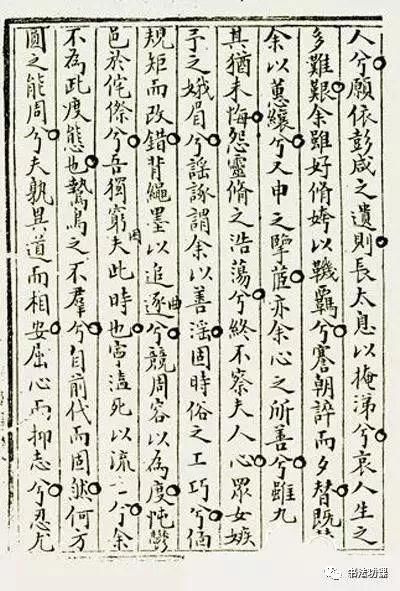 人兮願依彭咸之遺則長太息以掩涕兮哀人生之
多難艱余雖好脩姱以鞿羈兮謇朝誶而夕替既
余以蕙纕兮又申之擥茝亦余心之所善兮雖九
其猶未悔怨靈脩之浩蕩兮終不察夫人心眾女嫉
予之娥眉兮謠諑謂余以善淫固時俗之工巧兮偭
規矩而改錯背繩墨以追逐曲兮競周容以為度忳鬱
邑於侘傺兮吾獨窮困夫此時也寧溘死以流兮余
不為此度態也鷙鳥之不羣兮自前代而固然何方
圓之能周兮夫孰異道而相安屈心而抑志兮忍尤
书法功器